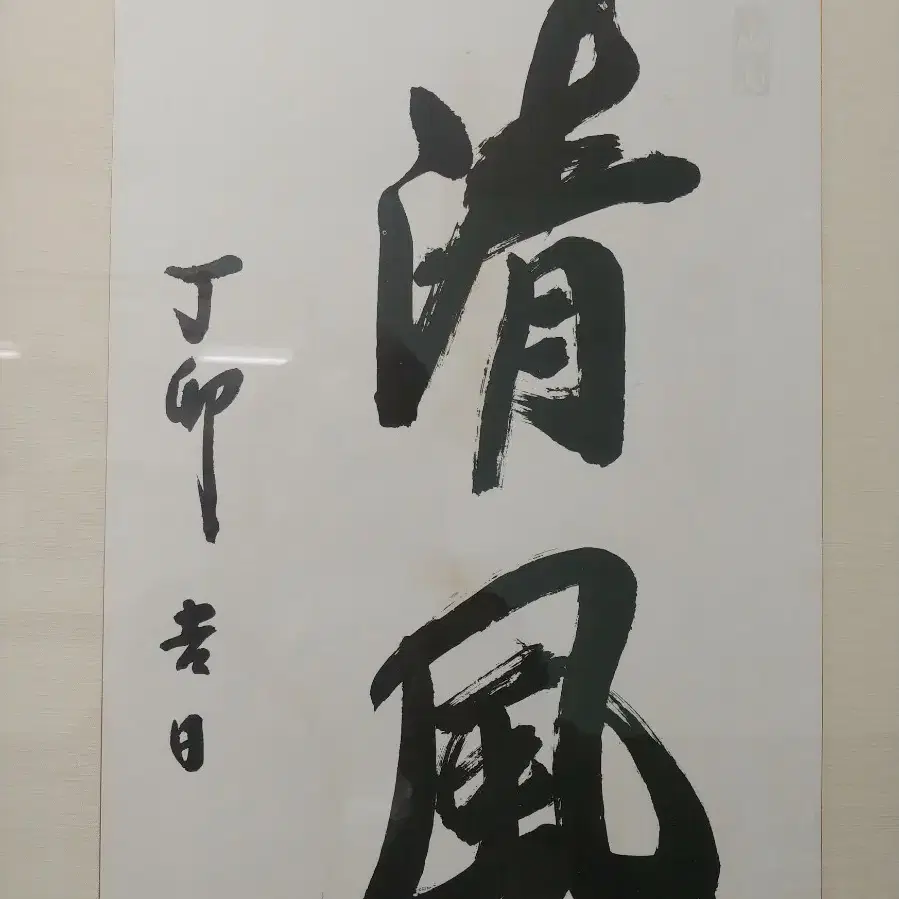 清風
丁卯吉日